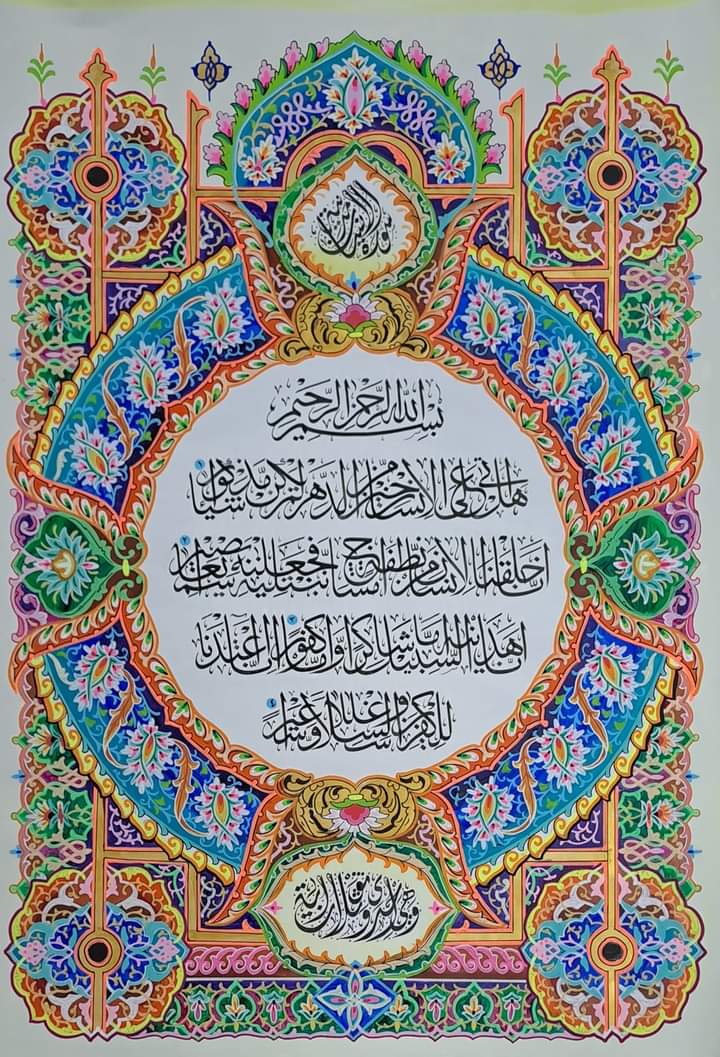 سورة الانسان
بسم الله الرحمن الرحيم
هل اتى على الانسان حين من الدهر لم يكن شيئا مذكورا ١
انا خلقنا الانسان من نطفة امشاج نبتليه فجعلنه سميعا بصيرا ٢
انا هدينه السبيل اما شاكرا واما كفورا ٣ انا اعتدنا
للكفرين سلسلا واغللا وسعيرا ٤
وهي احدى وثلاثون اية